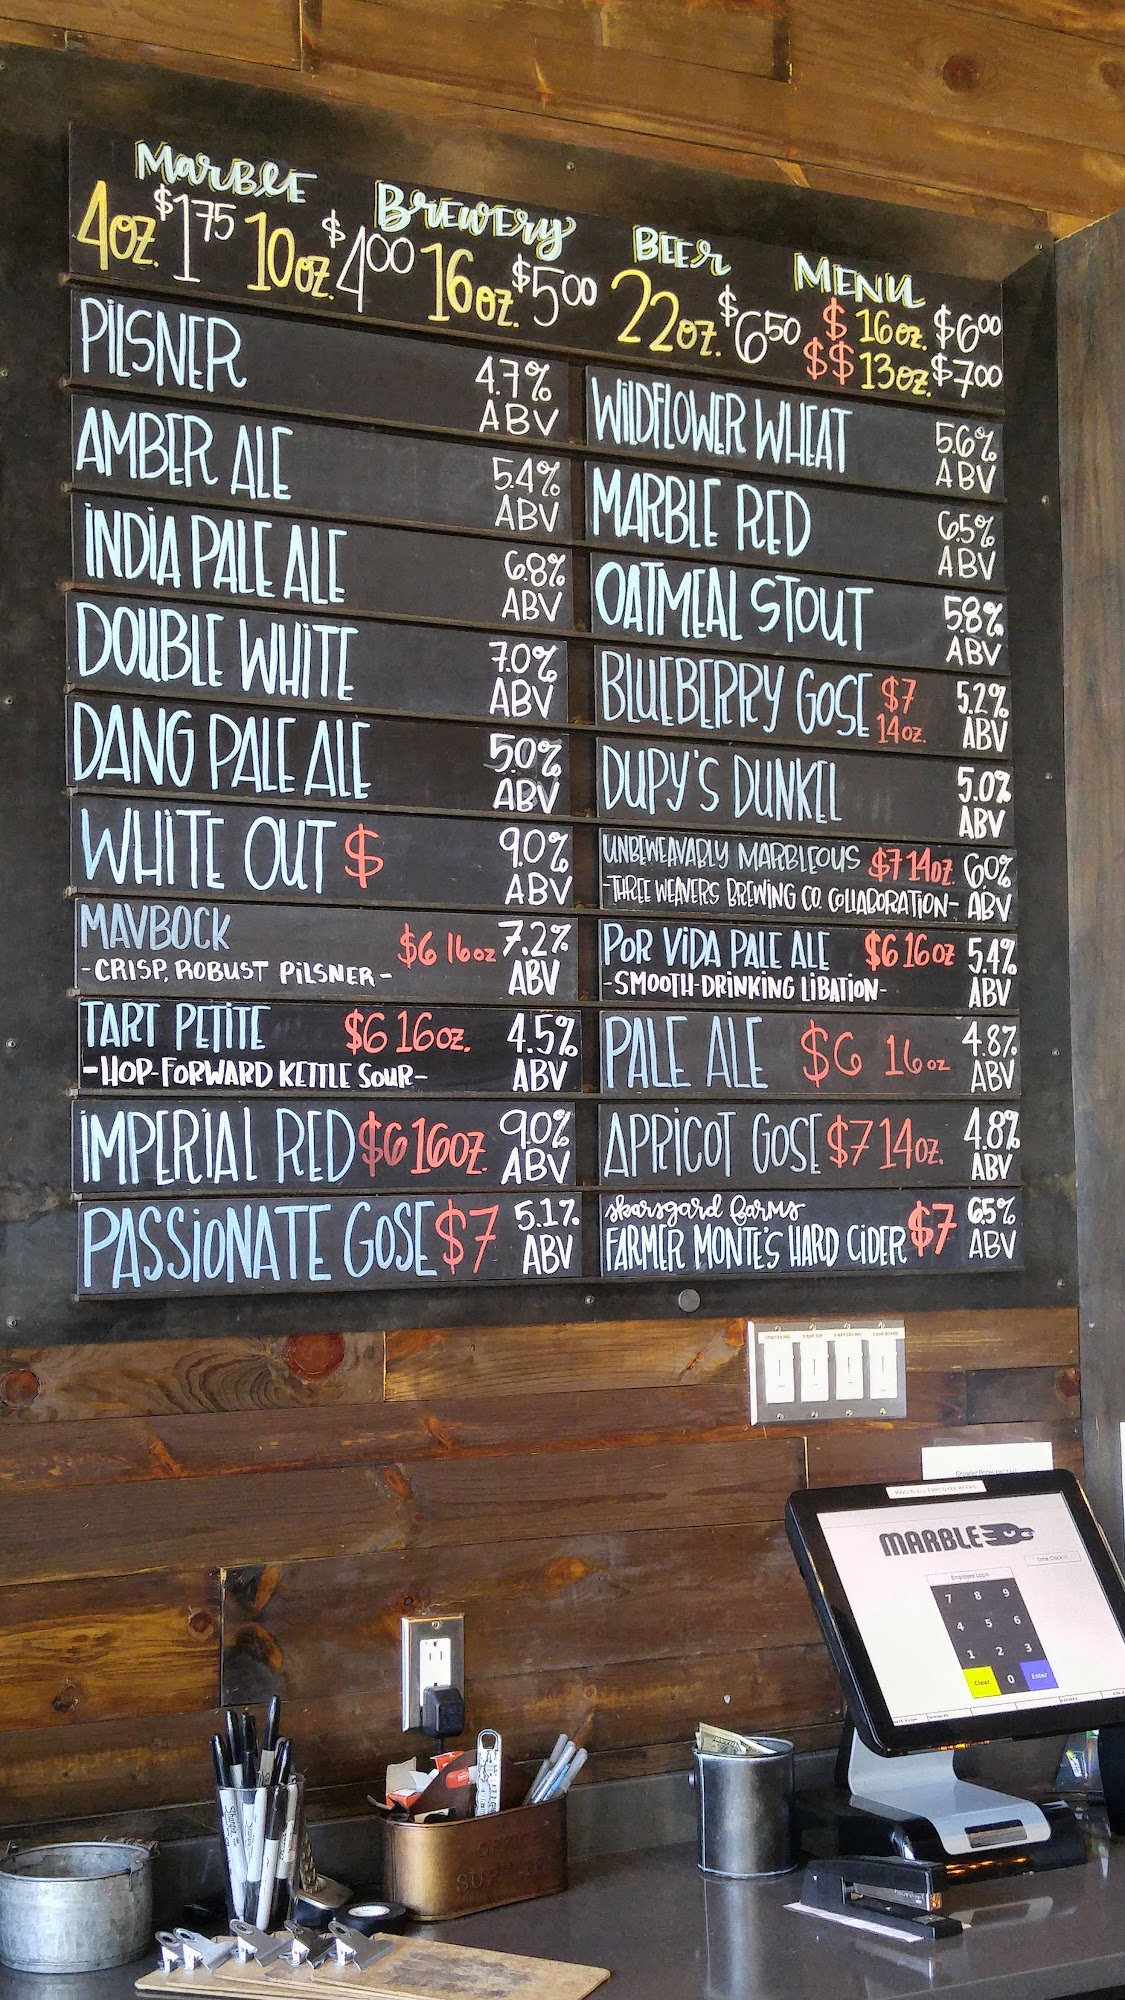 Marble Brewery Beer Menu
4oz. $1.75 10oz. $4.00 16oz. $5.00 22oz. $6.50 $ 16oz. $6.00
$$ 13oz. $7.00
PILSNER 4.7% ABV
AMBER ALE 5.4% ABV
INDIA PALE ALE 6.8% ABV
DOUBLE WHITE 7.0% ABV
DANG PALE ALE 5.0% ABV
WHITE OUT $ 9.0% ABV
MAVBOCK $6 16oz 7.2% ABV
-CRISP, ROBUST PILSNER-
TART PETITE $6 16oz. 4.5% ABV
-HOP-FORWARD KETTLE SOUR-
IMPERIAL RED $6 16oz. 9.0% ABV
PASSIONATE GOSE $7 5.1% ABV
WILDFLOWER WHEAT 5.6% ABV
MARBLE RED 6.5% ABV
OATMEAL STOUT 5.8% ABV
BLUEBERRY GOSE $7 14oz. 5.2% ABV
DUPY'S DUNKEL 5.0% ABV
UNBEWEAVABLY MARBLEOUS $7 14oz. 6.0% ABV
-THREE WEAVERS BREWING CO. COLLABORATION-
POR VIDA PALE ALE $6 16oz 5.4% ABV
-SMOOTH-DRINKING LIBATION-
PALE ALE $6 16oz 4.8% ABV
APRICOT GOSE $7 14oz. 4.8% ABV
skarsgard farms
FARMER MONTE'S HARD CIDER $7 6.5% ABV
MARBLE
Time Clock
Employee Login
7 8 9
4 5 6
1 2 3
Clear 0 Enter
Sharpie